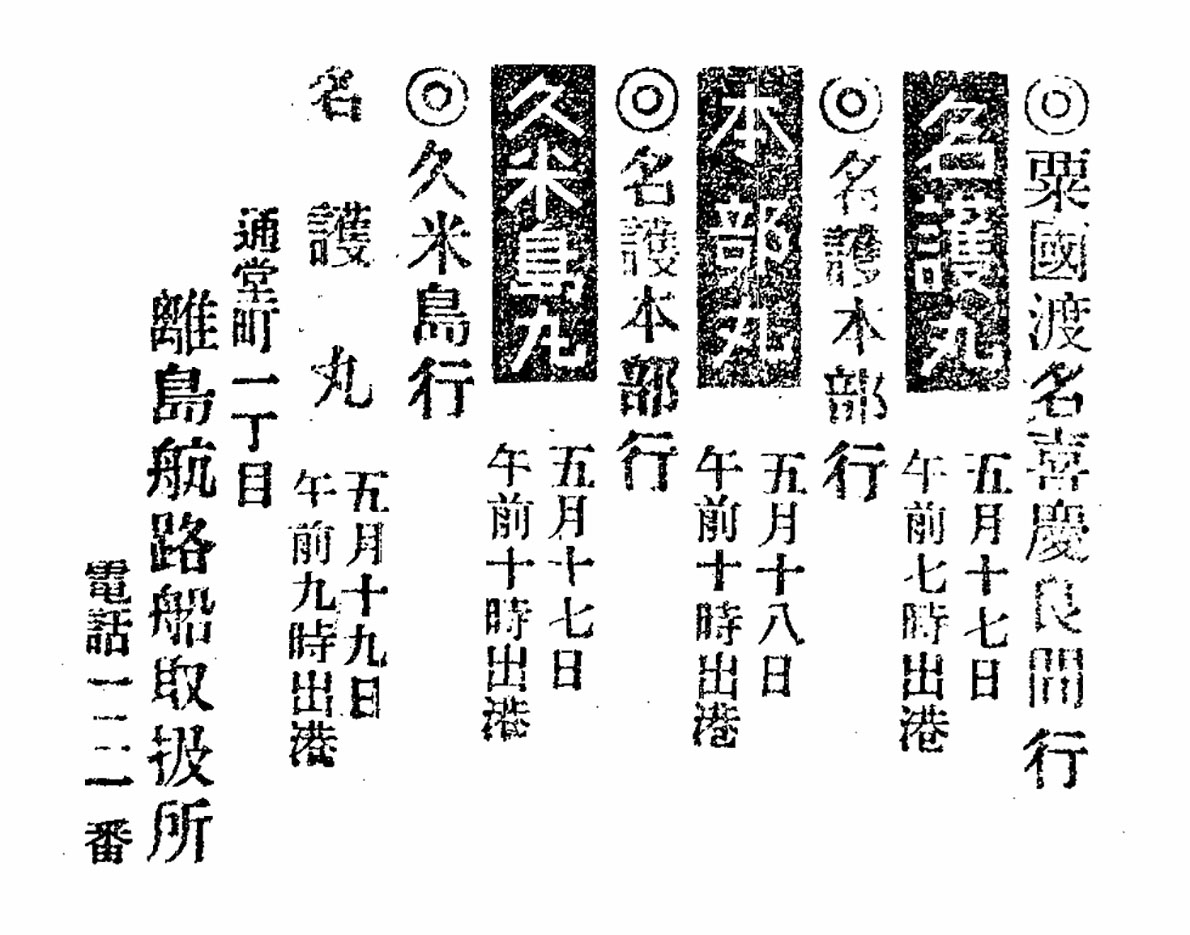 ◎粟國渡名喜慶良間行
名護丸
五月十七日
午前七時出港
◎名護本部行
本部丸
五月十八日
午前十時出港
◎名護本部行
久米島丸
五月十七日
午前十時出港
◎久米島行
名護丸
五月十九日
午前九時出港
通堂町一丁目
離島航路船取扱所
電話一二一番